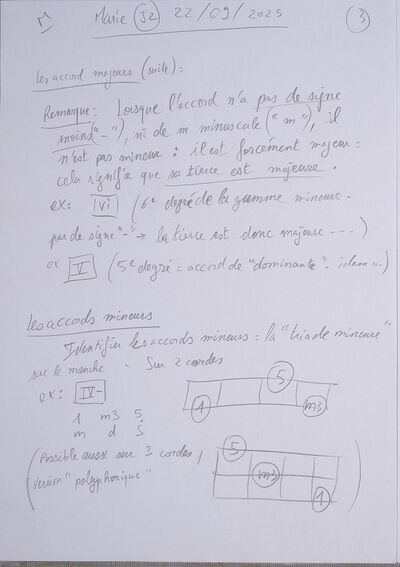 Marie J2 22/09/2025 3
Les accord majeurs (suite) :
Remarque : Lorsque l'accord n'a pas de signe
moins ("-"), ni de m minuscule ("m"), il
n'est pas mineur : il est forcément majeur =
cela signifie que sa tierce est majeure.
ex : VI (6e degré de la gamme mineure -
pas de signe "-" → la tierce est donc majeure ---)
ex V (5e degré = accord de "dominante" - idem...)
Les accords mineurs
Identifier les accords mineurs = la "triade mineure"
sur le manche - Sur 2 cordes
ex : IV-
1 m3 5
m d S
1 5 m3
(Possible aussi sur 3 cordes,
version "polyphonique")
5 m3 1